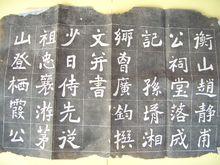 衡山趙靜甫
公祠堂落成
記 孫壻湘
鄉曾廣鈞撰
文并書
少日侍先從
祖忠襄游茅
山登栖霞公